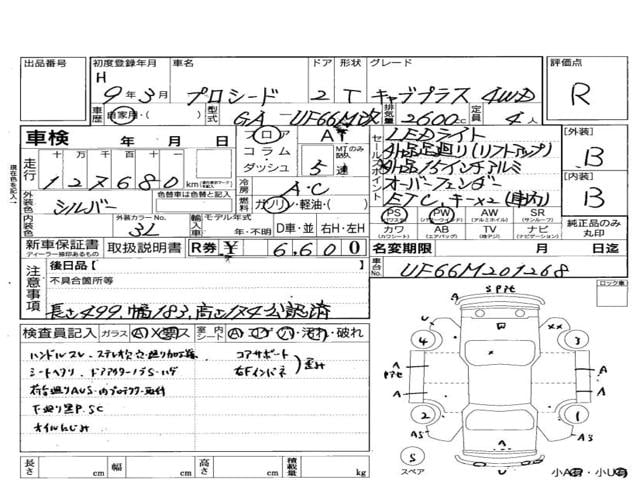 出品番号 初度登録年月 車名 ドア 形状 グレード 評価点
H 9年3月 プロシード 2 T キャブプラス 4WD R
車歴 自家用・( ) 型式 GA-UF66M改 排気量 2600cc 定員 4人
車検 年 月 日
フロア AT
コラム MTのみ記入
ダッシュ 5速
走行 十万 万 千 百 十
127680 km
セールスポイント
LEDライト
外品足廻り(リフトアップ)
外品15インチアルミ
オーバーフェンダー
ETC,キー×2(車内)
【外装】 B
【内装】 B
外装色 シルバー 色替車は色替と記入
冷房 AC
燃料 ガソリン・軽油・( )
内装色 外装カラーNo. 3L
輸入車 モデル年式 年・不明 D車・並 右H・左H
PS PW AW SR
カワ AB TV ナビ
純正品のみ丸印
新車保証書 取扱説明書 R券 ¥6,600
ディーラー捺印あるもの
名変期限 月 日迄
注意事項
後日品【 】
不具合箇所等
長さ499,幅183,高さ184公認済
車台No. UF66M201268
ロック車
検査員記入 ガラス Ⓐ X 要ス 室内シート
ハンドルスレ
シートヘタリ
コアサポート
右Fインパネ
下廻り黒P.SC
オイルにじみ
長さ cm 幅 cm 高さ cm 積載量 kg
S スペア
小A有・小U有